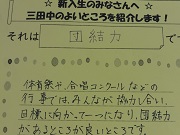 ☆ 新入生のみなさんへ ☆
三田中のよいところを紹介します！
それは 団結力 で
体育祭や、合唱コンクールなどの
行事では、みんなが協力し合い、
目標に向かって一つになり、団結力
があるところが良いところです。